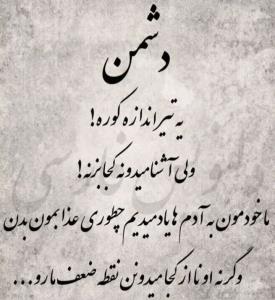 دشمن
یه تیراندازه کوره!
ولی آشنا میدونه کجا بزنه!
ما خودمون به آدم ها یاد میدیم چطوری عذابمون بدن
وگرنه اونا از کجا میدونن نقطه ضعف مارو...